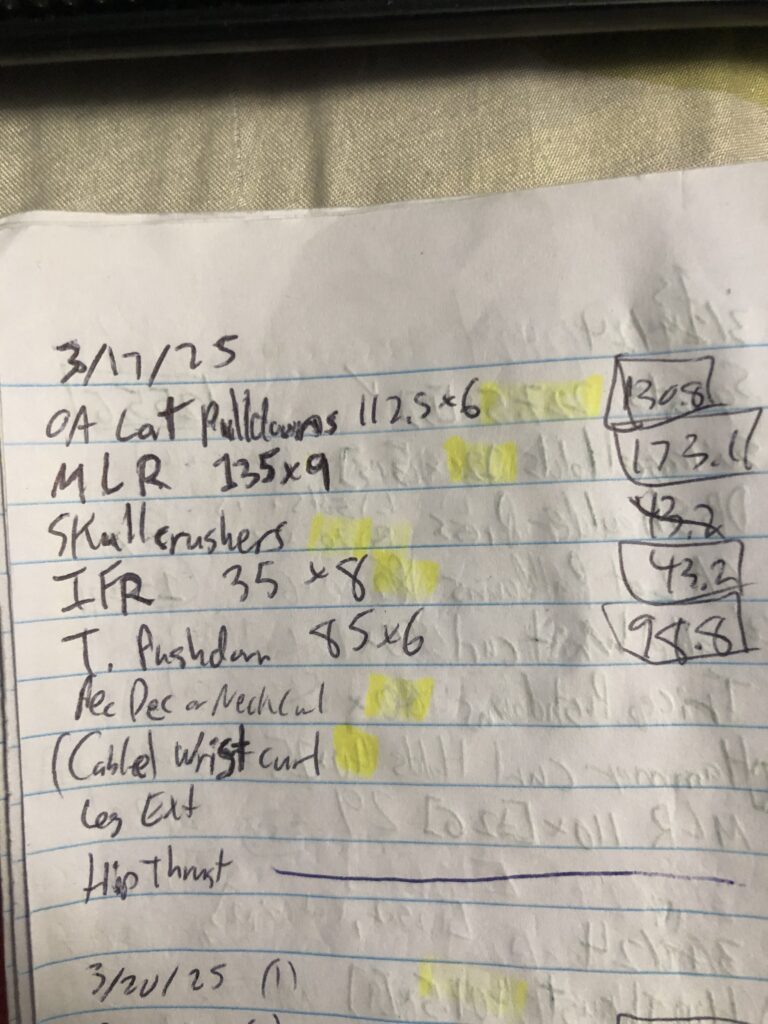 3/17/25
OA Lat Pulldowns 112.5x6 130.8
MLR 135x9 173.1
Skullcrushers 43.2
IFR 35 x8 43.2
T. Pushdown 85x6 98.8
Pec Dec or Neck Curl
(Cable) Wrist curl
Leg Ext
Hip Thrust
3/20/25 (1)